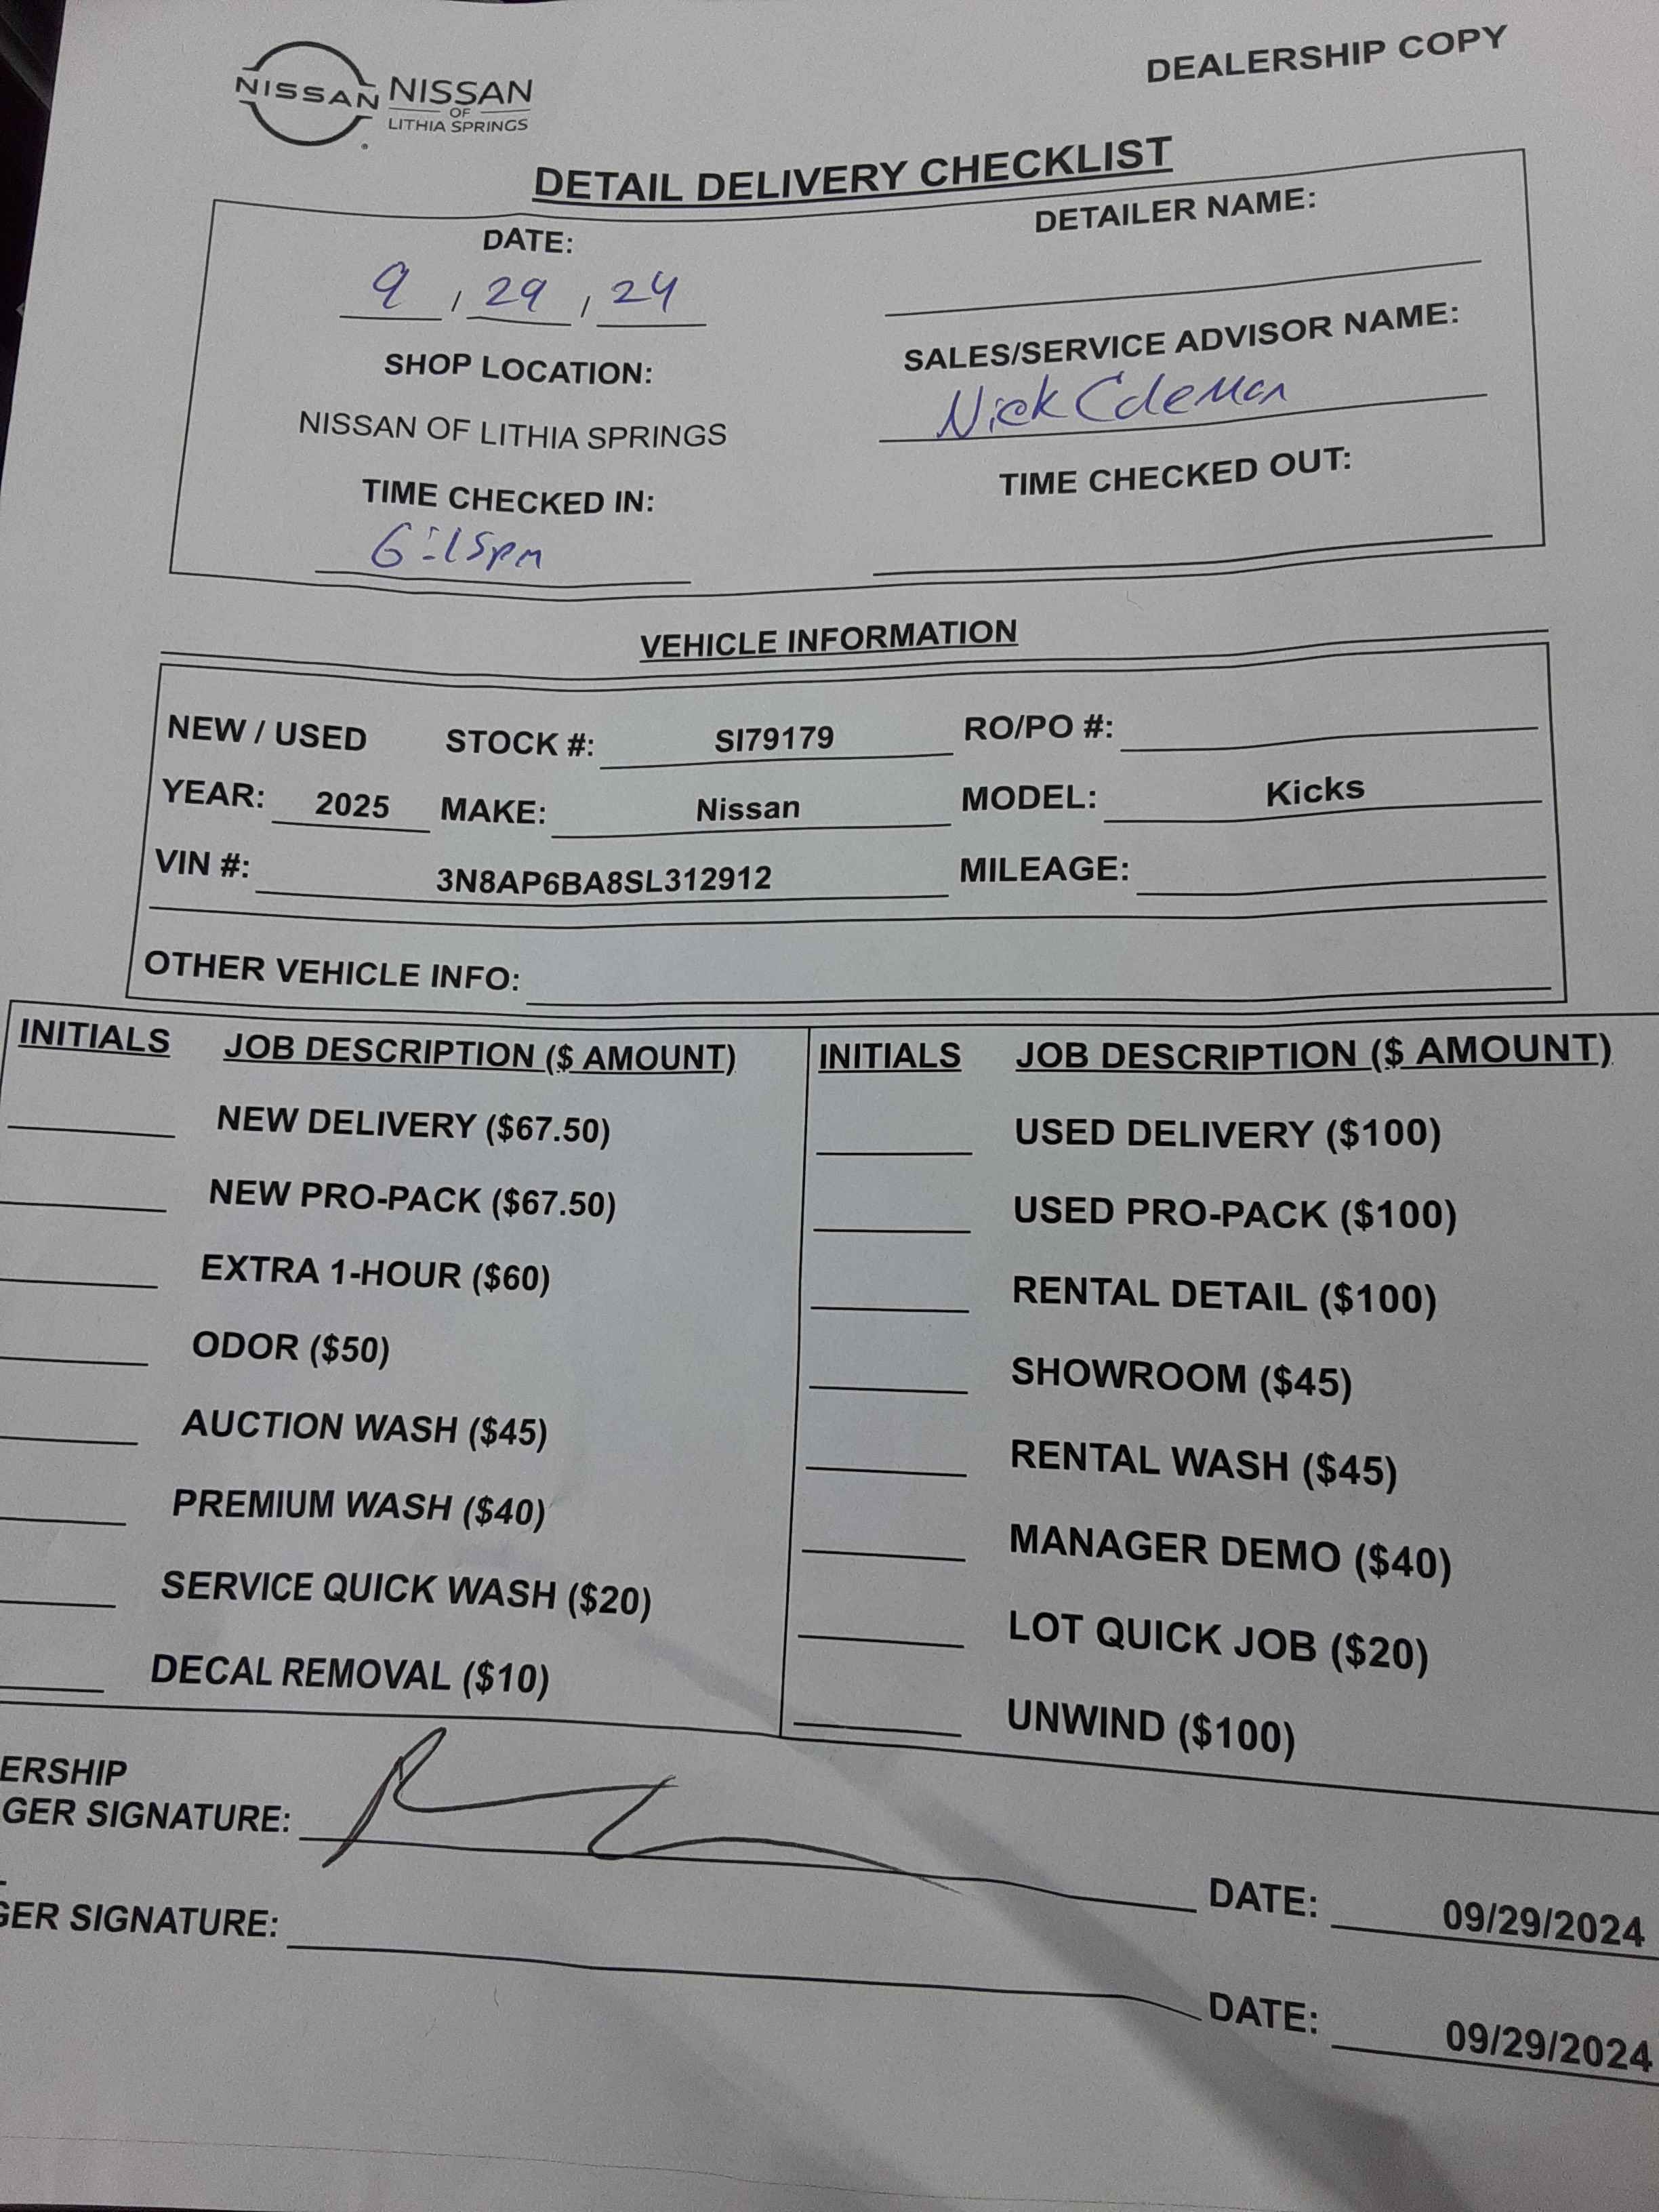 DEALERSHIP COPY
NISSAN NISSAN
OF
LITHIA SPRINGS
DETAIL DELIVERY CHECKLIST
DATE: DETAILER NAME:
9 / 29 / 24
SHOP LOCATION: SALES/SERVICE ADVISOR NAME:
NISSAN OF LITHIA SPRINGS Nick Coleman
TIME CHECKED IN: TIME CHECKED OUT:
6:15pm
VEHICLE INFORMATION
NEW / USED STOCK #: SI79179 RO/PO #:
YEAR: 2025 MAKE: Nissan MODEL: Kicks
VIN #: 3N8AP6BA8SL312912 MILEAGE:
OTHER VEHICLE INFO:
INITIALS JOB DESCRIPTION ($ AMOUNT) INITIALS JOB DESCRIPTION ($ AMOUNT)
NEW DELIVERY ($67.50) USED DELIVERY ($100)
NEW PRO-PACK ($67.50) USED PRO-PACK ($100)
EXTRA 1-HOUR ($60) RENTAL DETAIL ($100)
ODOR ($50) SHOWROOM ($45)
AUCTION WASH ($45) RENTAL WASH ($45)
PREMIUM WASH ($40) MANAGER DEMO ($40)
SERVICE QUICK WASH ($20) LOT QUICK JOB ($20)
DECAL REMOVAL ($10) UNWIND ($100)
ERSHIP
GER SIGNATURE: DATE: 09/29/2024
GER SIGNATURE: DATE: 09/29/2024